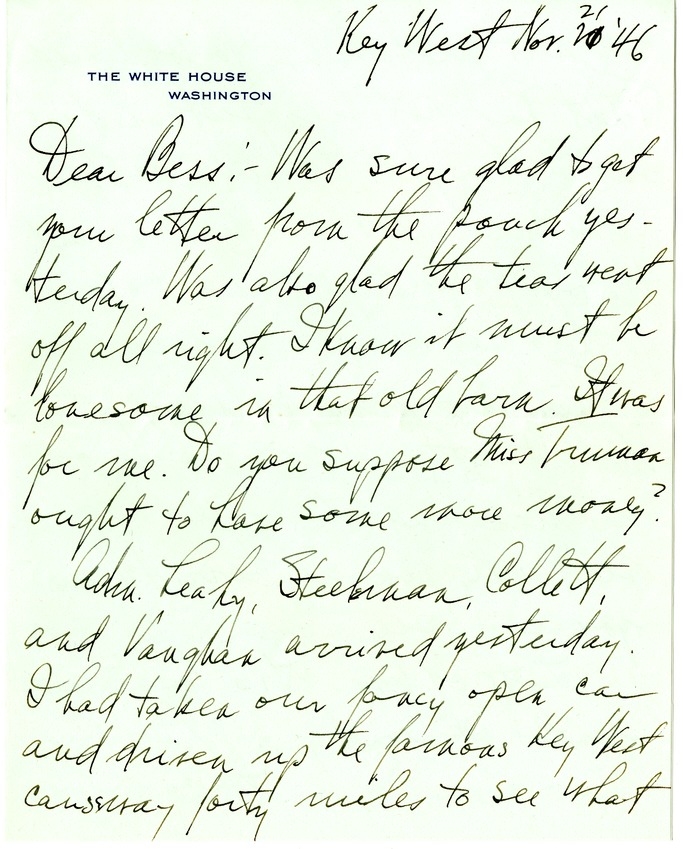 Key West Nov. 21 '46
THE WHITE HOUSE
WASHINGTON
Dear Bess:- Was sure glad to get
your letter from the pouch yes-
terday. Was also glad the tea went
off all right. I know it must be
lonesome in that old barn. It was
for me. Do you suppose Miss Truman
ought to have some more money?
Adm. Leahy, Steelman, Collett,
and Vaughan arrived yesterday.
I had taken our fancy open car
and driven up the famous Key West
causeway forty miles to see what